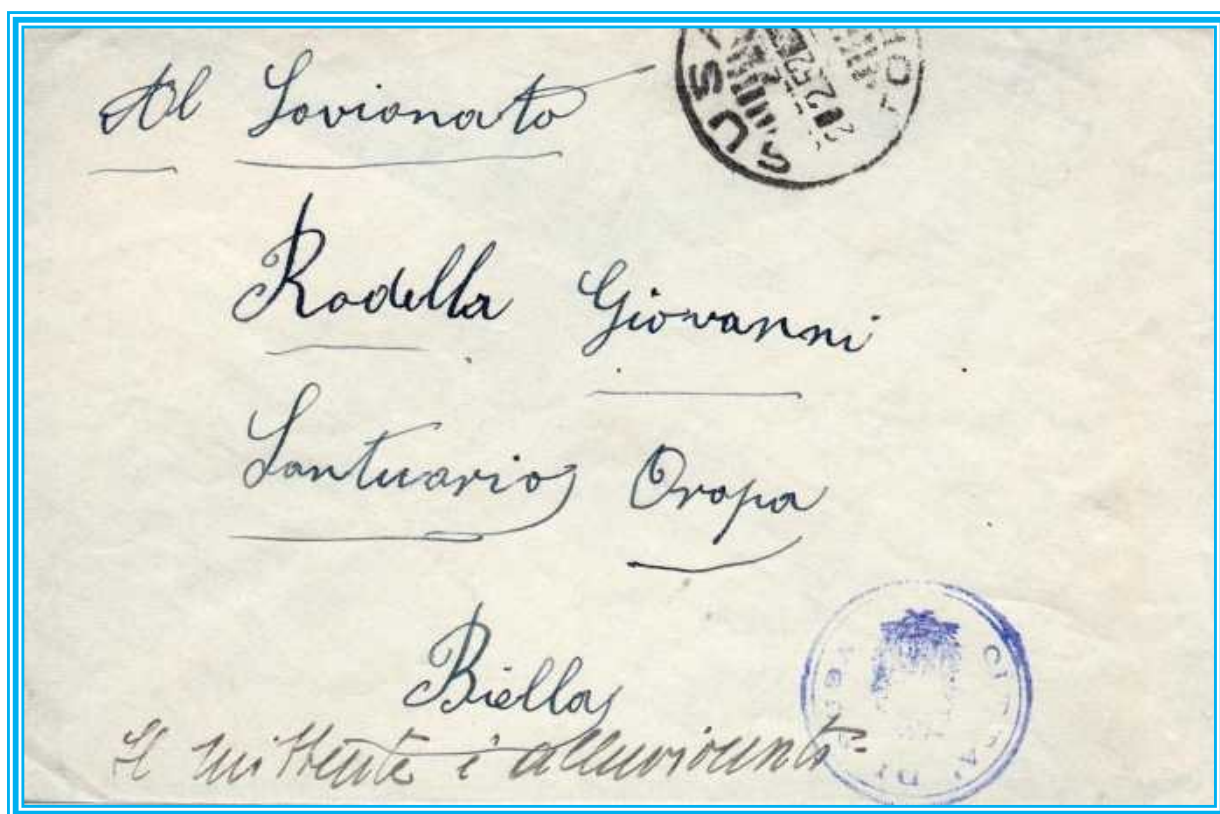 Al Sovionato
Rodella Giovanni
Santuario Oropa
Biella
Il mittente è alluvionato
SUSA
CITTA' DI SUSA